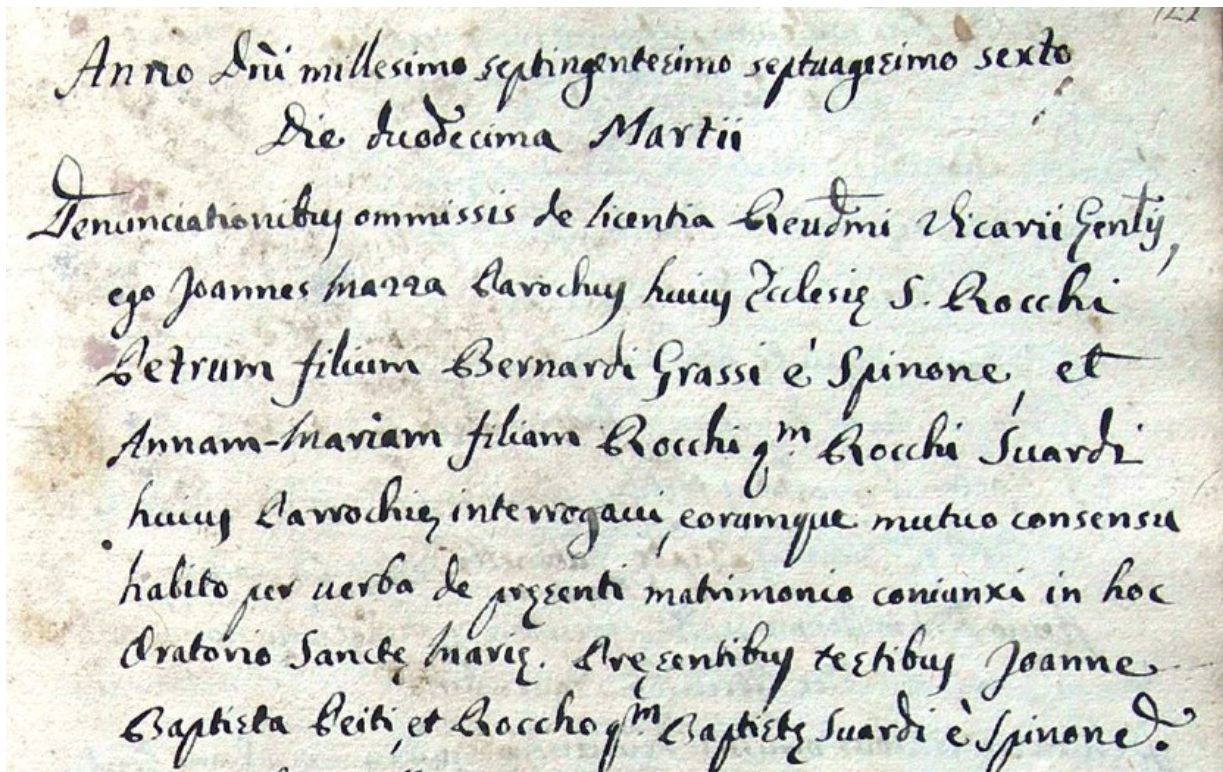 Anno Dñi millesimo septingentesimo septuagesimo sexto
Die duodecima Martii
Denunciationibus ommissis de licentia Reudmi Vicarii Genlis,
ego Joannes Mazza Parochus huius Ecclesię S. Rocchi
Petrum filium Bernardi Grassi è Spinone, et
Annam-Mariam filiam Rocchi qm. Rocchi Suardi
huius Parrochię, interrogaui, eorumque mutuo consensu
habito per uerba de pręsenti matrimonio coniunxi in hoc
Oratorio Sanctę Marię. Pręsentibus testibus Joanne
Baptista Beiti, et Roccho qm Baptistę Suardi è Spinone.